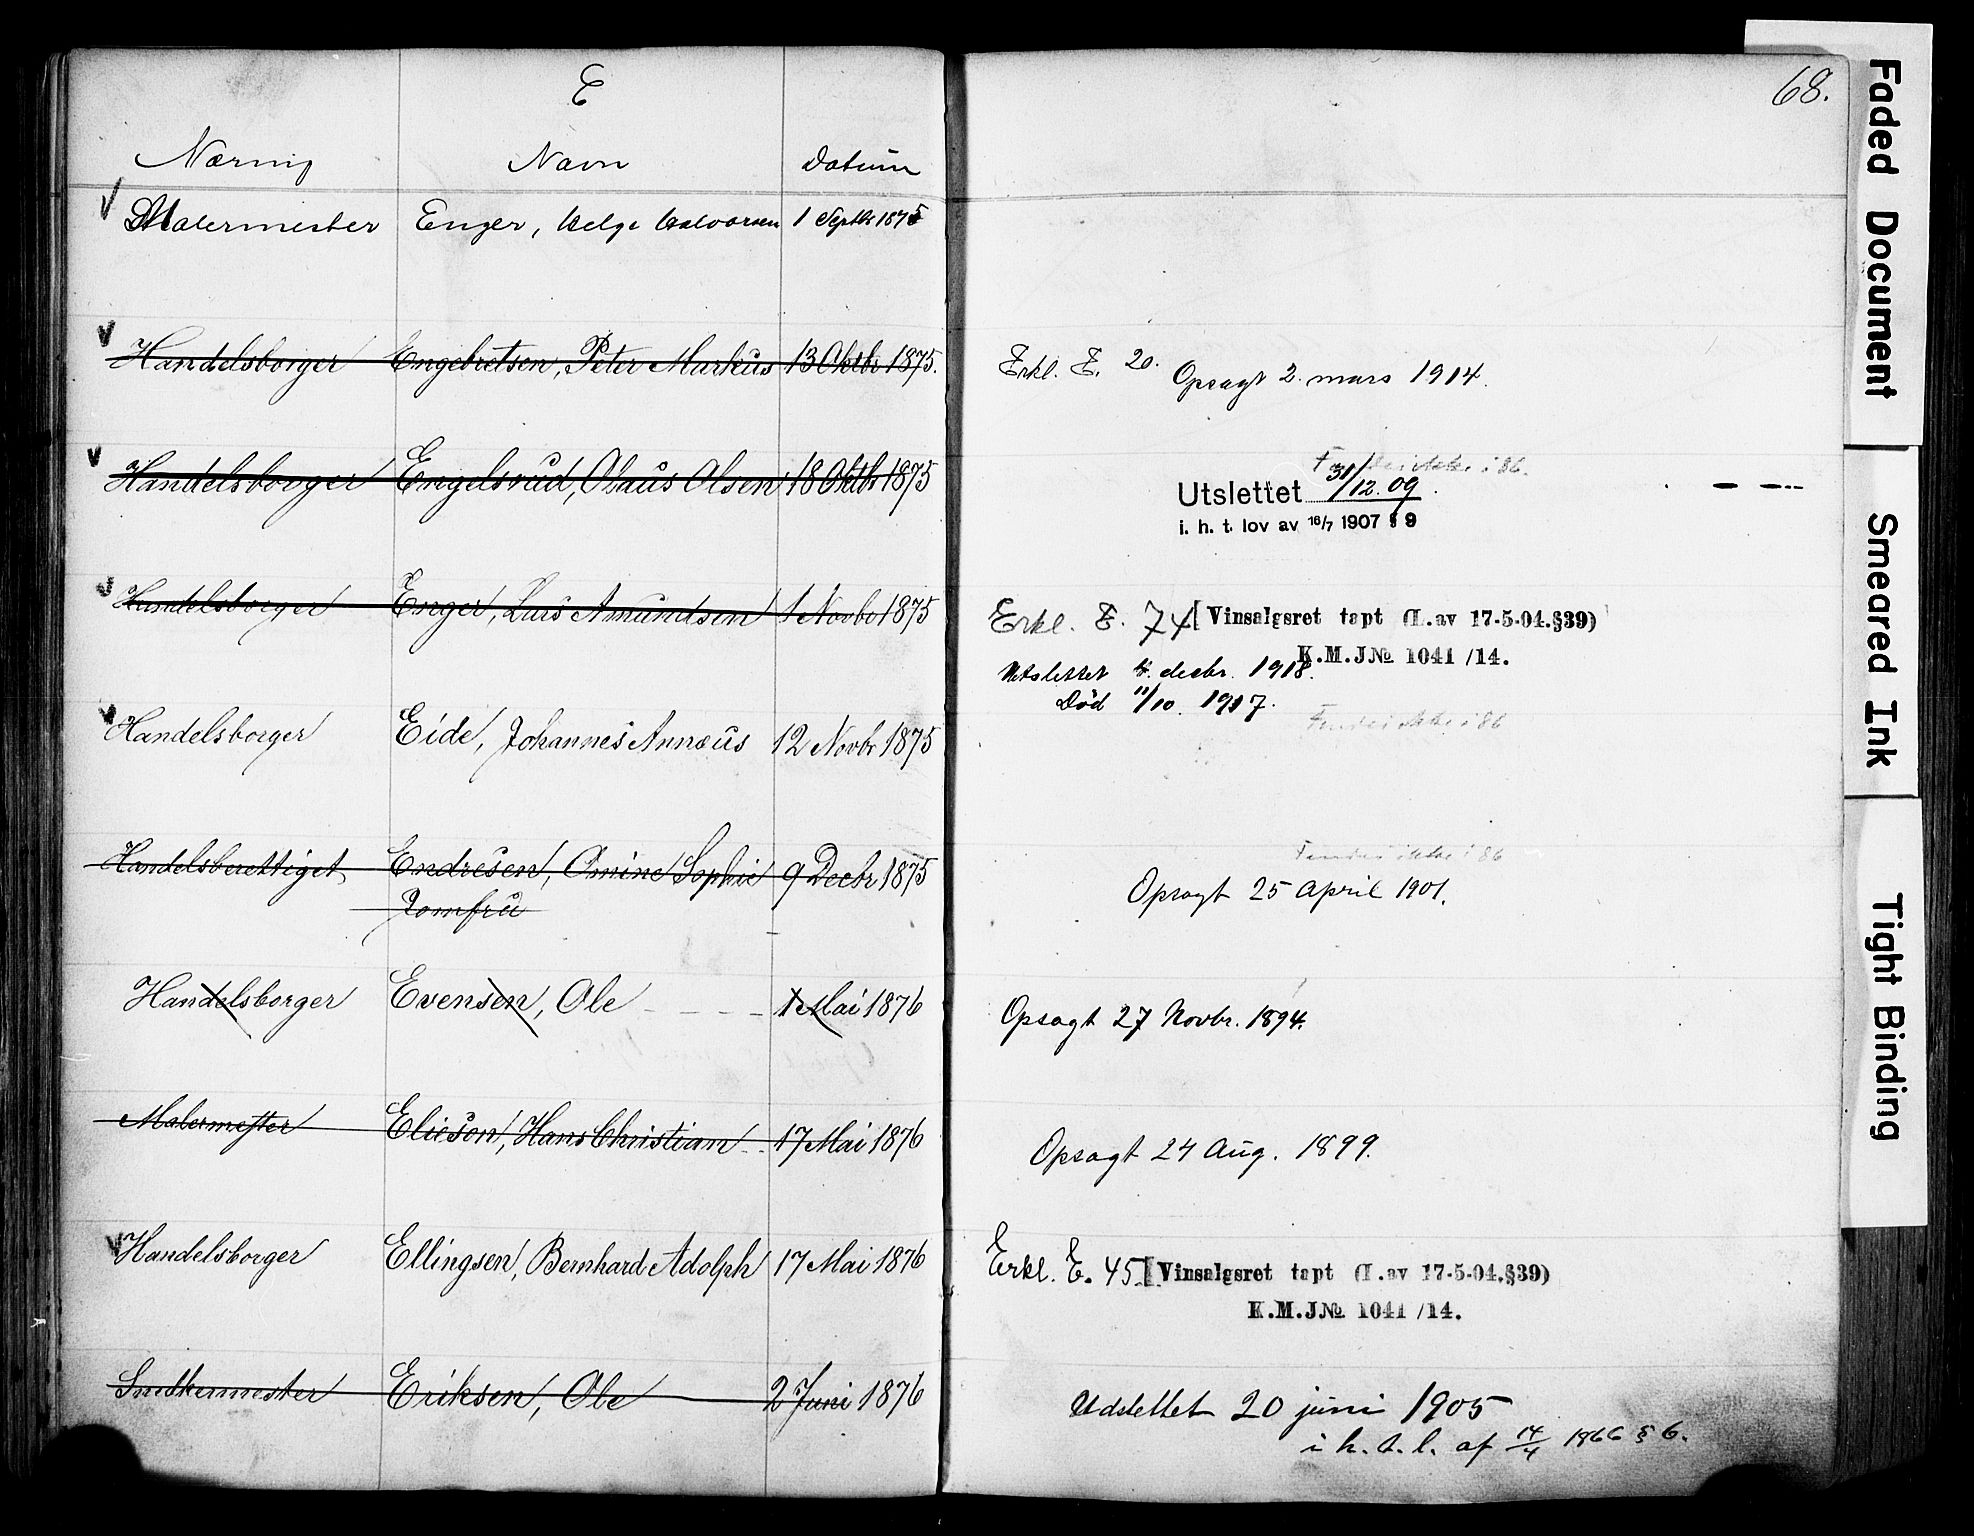 E
68.
Næring Navn Datum
Malermester Enger, Helge Halvorsen 1 Septbr 1875
Handelsborger Engebretsen, Peter Markus 13 Oktbr 1875.
Erkl. E. 20. Opsagt 2. mars 1914.
Handelsborger Engelsrud, Olaus Olsen 18 Oktbr 1875
Findes ikke i 86.
Utslettet 31/12.09.
i. h. t. lov av 16/7 1907 § 9
Handelsborger Enger, Lars Amundsen 1 Novbr 1875
Erkl. E. 74 [Vinsalgsret tapt (L.av 17-5-04.§39)
K.M.J№ 1041 /14.
Utslettet 4. decbr. 1918.
Død 11/10. 1917.
Handelsborger Eide, Johannes Annæus 12 Novbr 1875
Findes ikke i 86
Handelsberettiget Endresen, Omine Sophie 9 Decbr 1875
Jomfru
Findes ikke i 86
Opsagt 25 April 1901.
Handelsborger Evensen, Ole 1 Mai 1876
Opsagt 27 Novbr. 1894.
Malermester Elieson, Hans Christian 17 Mai 1876
Opsagt 24 Aug. 1899.
Handelsborger Ellingsen, Bernhard Adolph 17 Mai 1876
Erkl. E. 45 [Vinsalgsret tapt (L.av 17-5-04.§39)
K.M.J№ 1041 /14.
Snedkermester Eriksen, Ole 2 Juni 1876
Udslettet 20 juni 1905
i h. t. l. af 14/4 1866 § 6.
Faded Document
Smeared Ink
Tight Binding